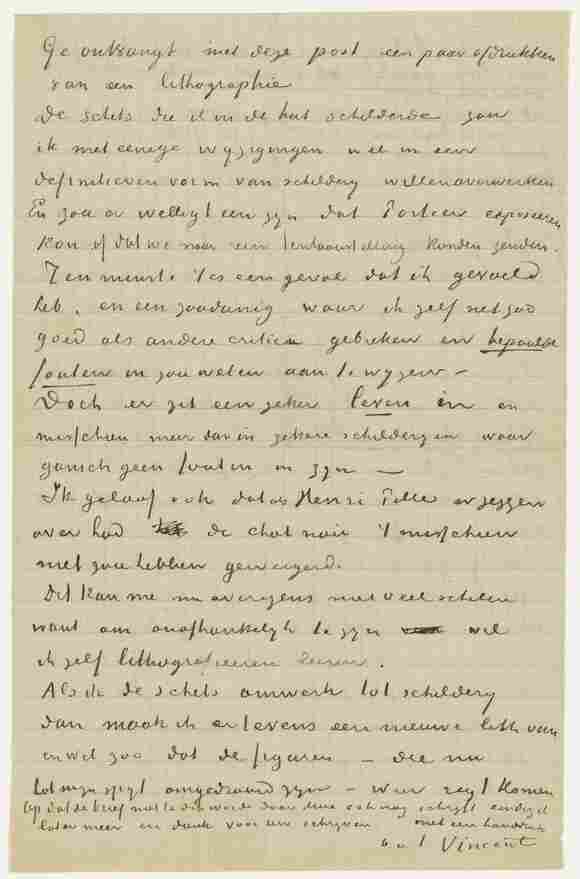 Ge ontvangt met deze post een paar afdrukken
van een lithographie
De schets die ik in de hut schilderde zou
ik met eenige wyzigingen wel in een
definitieven vorm van schildery willen overwerken
En zou er welligt een zyn dat Portier exposeeren
kon of dat we naar een tentoonstelling konden zenden.
Ten minste 't is een geval dat ik gevoeld
heb, en een zoodanig waar ik zelf net zoo
goed als andere critici gebreken en bepaalde
fouten in zou weten aan te wyzen –
Doch er zit een zeker leven in en
misschien meer dan in zekere schilderyen waar
gansch geen fouten in zyn —
Ik geloof ook dat als Henri Pille er zeggen
over had de chat noir 't misschien
niet zou hebben geweigerd.
Dit kan me nu overigens niet veel schelen
want om onafhankelyk te zyn wil
ik zelf lithografieeren leeren.
Als ik de schets omwerk tot schildery
dan maak ik er tevens een nieuwe lith van
en wel zoo dat de figuren – die nu
tot myn spyt omgedraaid zyn – weer regt komen
Op dat de brief niet te dik worde door deze schryf eindig ik
later meer en dank voor uw schryven met een handdruk
t. à t. Vincent